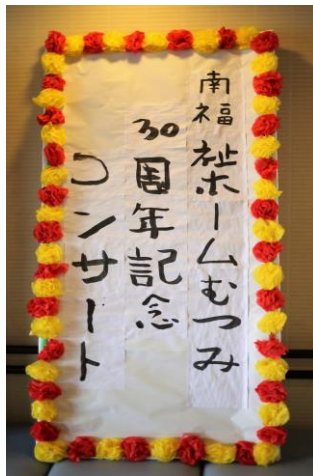 南福祉ホームむつみ
30周年記念
コンサート